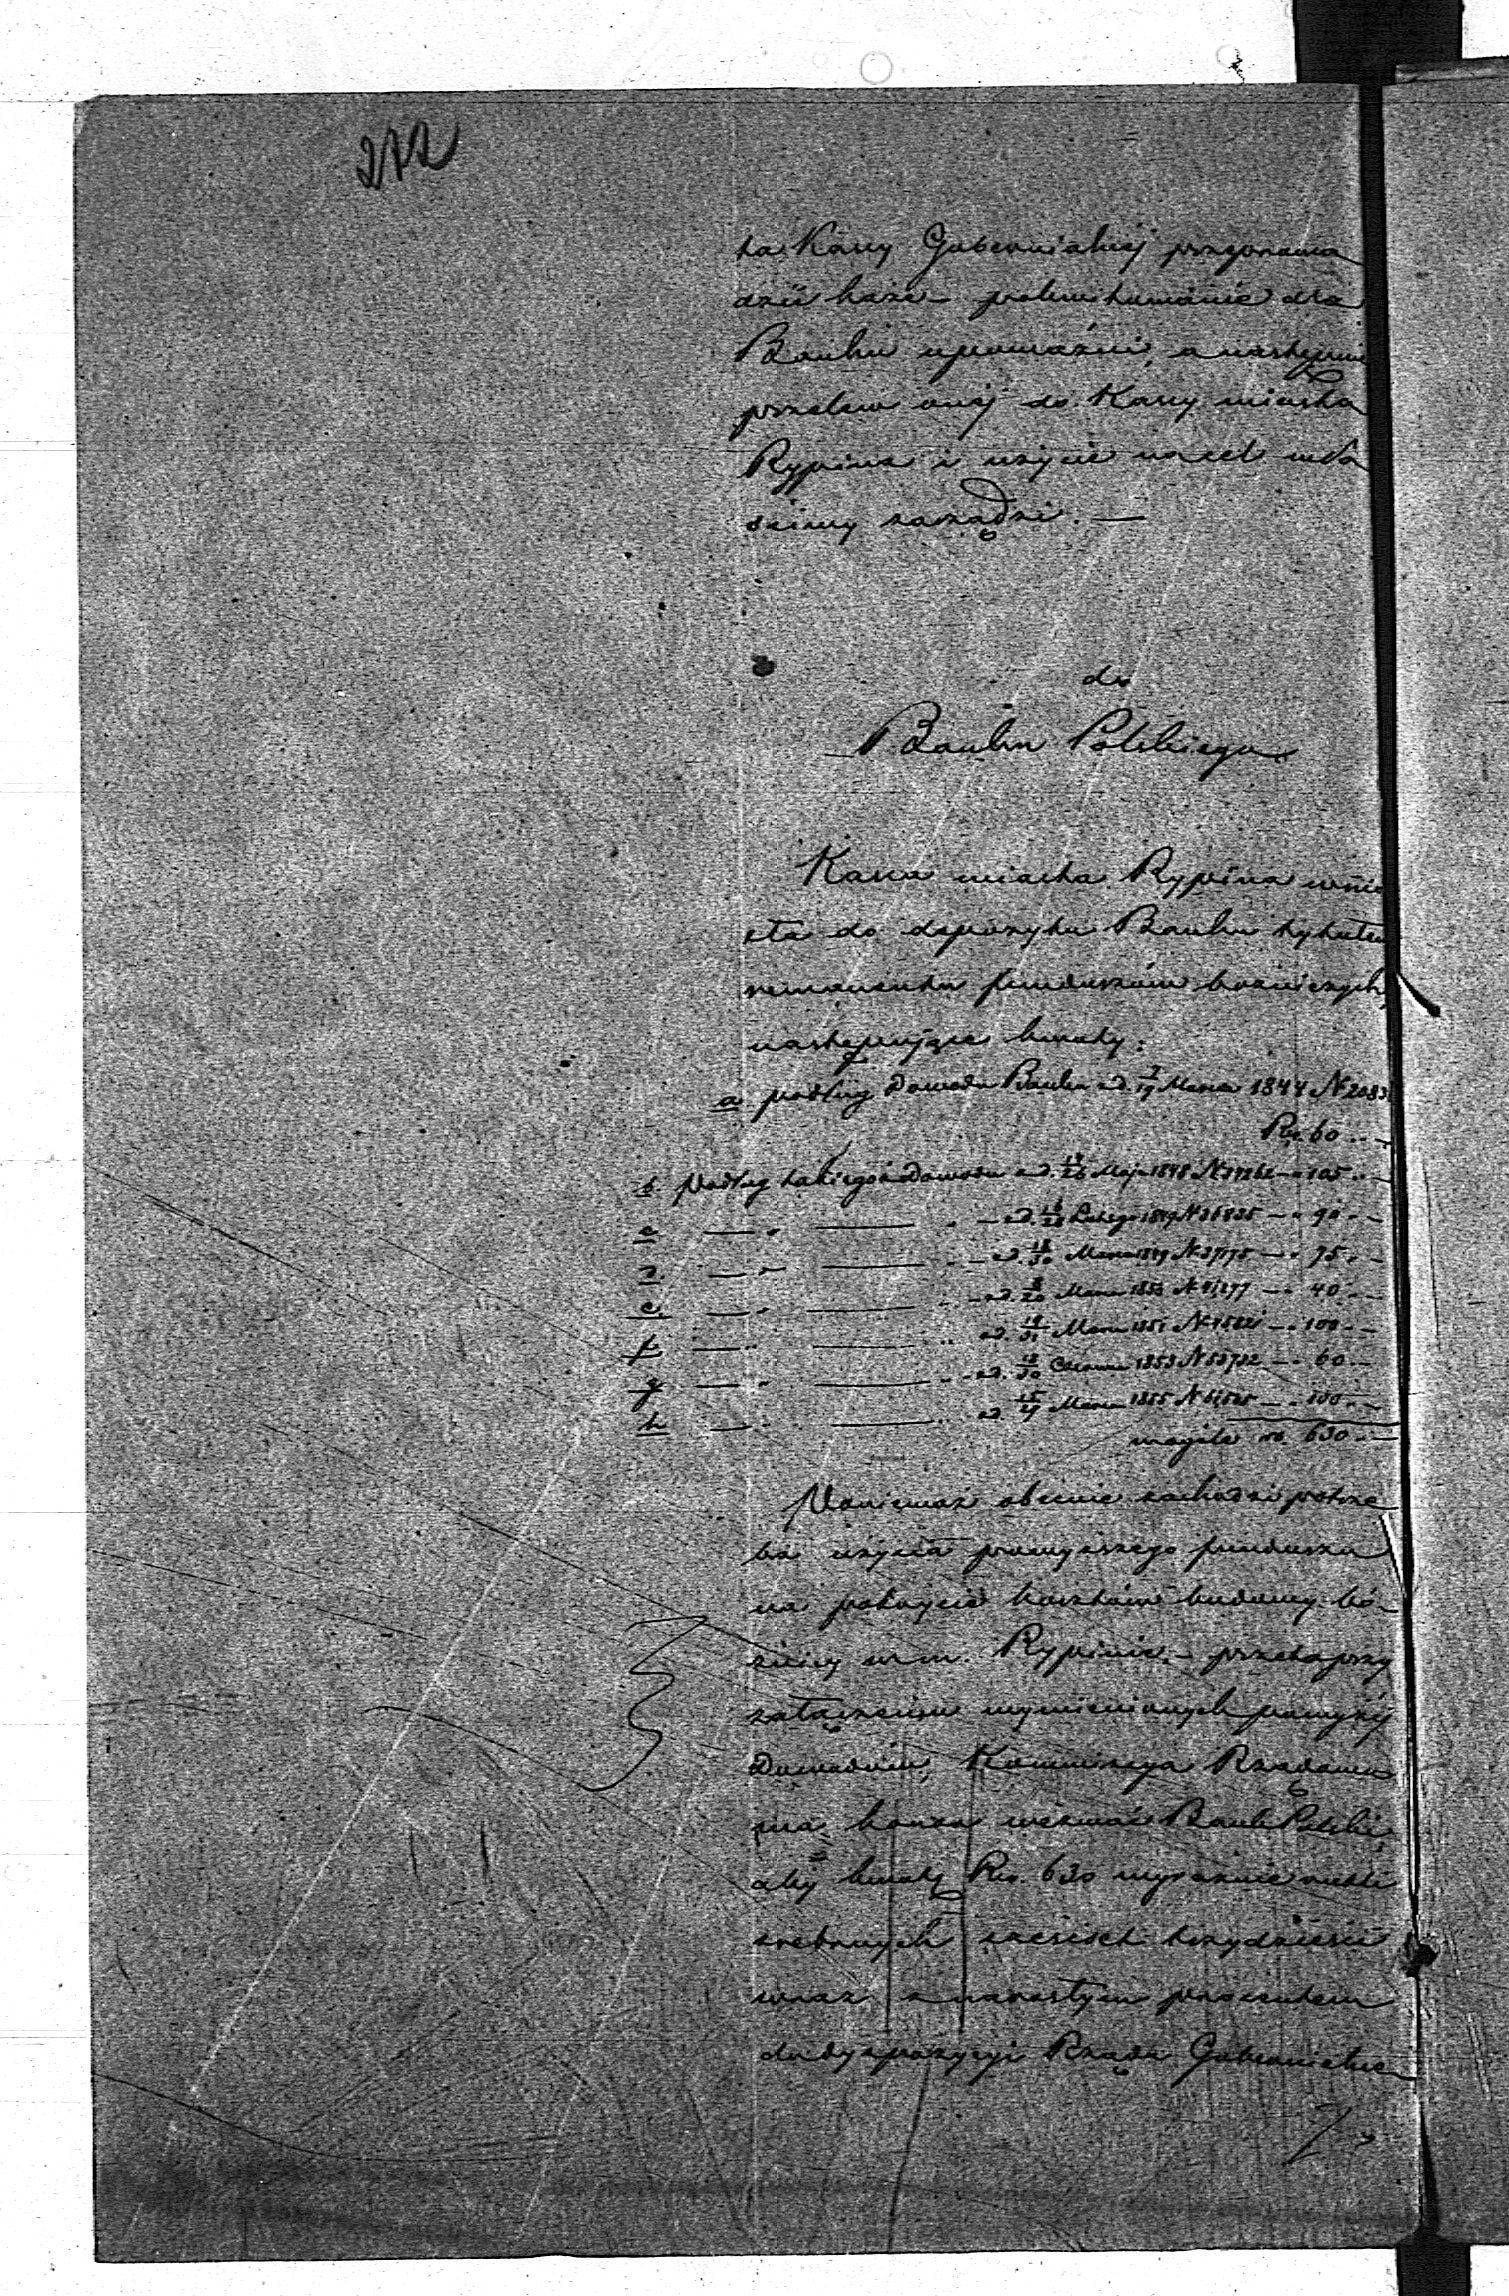 272
ta Kassy Gubernialnej przeprowa
dzić każe – pokwitowanie dla
Banku upoważni, a następnie
przelew onej do Kassy miasta
Rypina i użycie na cel wła
ściwy zarządzi. —
do
Banku Polskiego
Kassa miasta Rypina wnio
sła do depozytu Banku tytułem
remanentu funduszów bożniczych
następujące kwoty:
a podług Dowodu Banku z d. 7/19 Marca 1844 N 2083
Rs. 60 .. —
b. Podług takiegoż Dowodu z d. /26 Maja 1848 — " 105 .. —
c — " — .. — z d. 16/28 Lutego 1849 N 36835 — " 90 .. —
d. — " — .. — z d. 18/30 Marca 1849 N 37175 — " 75 .. —
e. — " — .. — z d. 8/20 Marca N 41277 — " 40 .. —
f. — " — .. z d. 19/31 Marca 1851 — " 100 .. —
g — " — .. — z d. 18/30 Czerwca 1853 N 53732 — " 60 .. —
h — " — .. z d. 15/27 Marca 1855 N — " 100 .. —
rs. 630 .. —
Ponieważ obecnie zachodzi potrze
ba użycia powyższego funduszu
na pokrycie kosztów budowy bó-
żnicy w m. Rypinie. – przeto przy
załączeniu wymienionych powyżej
Dowodów, Kommissya Rządowa
ma honor wezwać Bank Polski
aby kwotę Rs. 630 wyraźnie rubli
srebrnych sześćset trzydzieści
wraz z narosłym procentem
do dyspozycyi Rządu Gubernialne